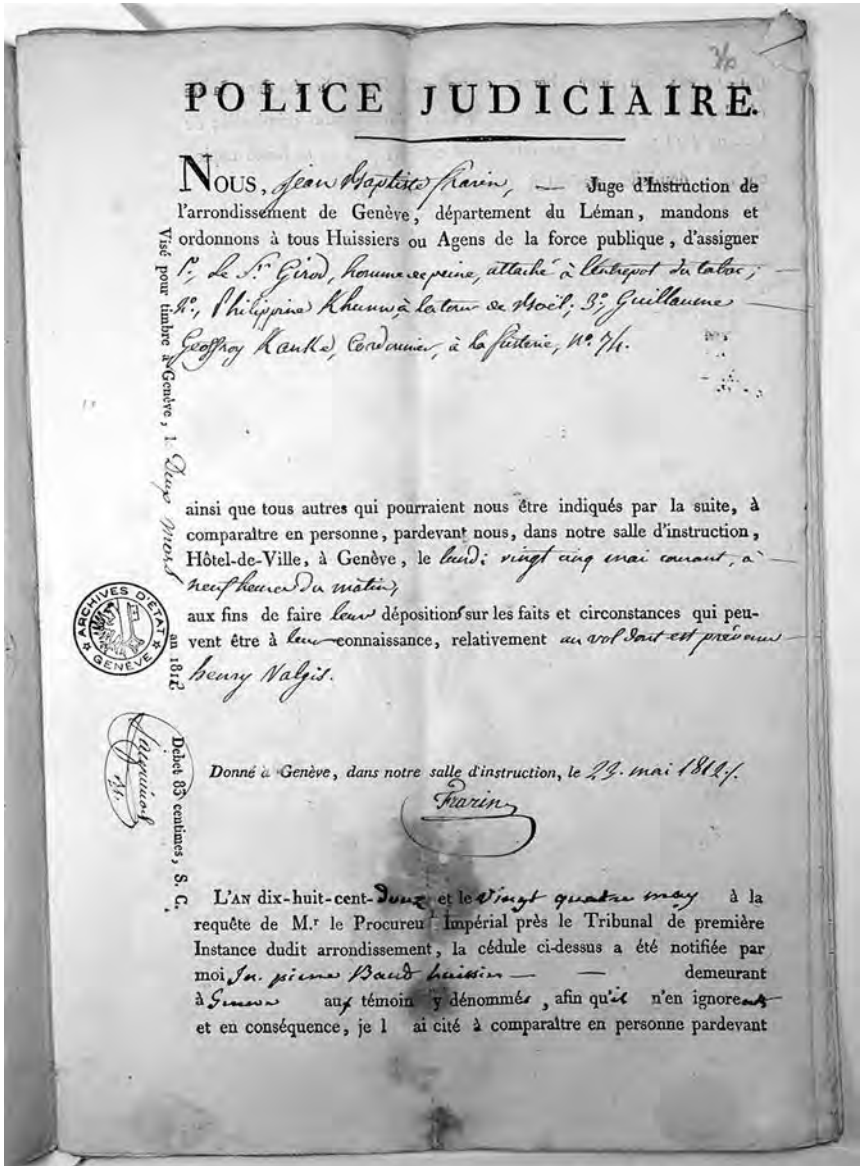 POLICE JUDICIAIRE.
NOUS, Jean Baptiste Frarin, — Juge d'Instruction de
l'arrondissement de Genève, département du Léman, mandons et
ordonnons à tous Huissiers ou Agens de la force publique, d'assigner
1º, le Sr. Girod, homme de peine, attaché à l'entrepot du tabac;
2º, Philippine Khunn, à la tour de Boël; 3º, Guillaume
Geoffroy Kanke, Cordonnier, à la fusterie, Nº. 74.
ainsi que tous autres qui pourraient nous être indiqués par la suite, à
comparaître en personne, pardevant nous, dans notre salle d'instruction,
Hôtel-de-Ville, à Genève, le lundi vingt cinq mai courant, à
neuf heures du matin,
aux fins de faire leur dépositions sur les faits et circonstances qui peu-
vent être à leur connaissance, relativement au vol dont est prévenu
henry Valgis.
Donné à Genève, dans notre salle d'instruction, le 23. mai 1812.
Frarin
L'AN dix-huit-cent-douze et le vingt quatre may à la
requête de M.r le Procureur Impérial près le Tribunal de première
Instance dudit arrondissement, la cédule ci-dessus a été notifiée par
moi Jn. pierre Baud huissier — — demeurant
à Geneve aux témoin y dénommés, afin qu'il n'en ignorent
et en conséquence, je l ai cité à comparaître en personne pardevant
Visé pour timbre à Genève, le Deux mars an 1812.
Debet 83 centimes, S. C.
ARCHIVES D'ÉTAT
GENÈVE